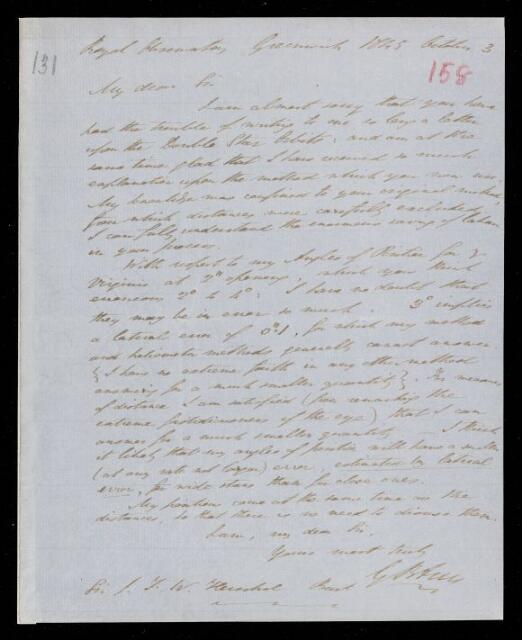 Royal Observatory Greenwich 1845 October 3
131
158
My dear Sir
I am almost sorry that you have
had the trouble of writing to me so long a letter
upon the Double Star Orbits: and am at the
same time glad that I have received so much
explanation upon the method which you now use.
My knowledge was confined to your original method,
from which distances were carefully excluded.
I can fully understand the enormous saving of labour
in your process.
With respect to my Angles of Position for γ
Virginis at 2" opening, which you think
erroneous 2° to 4°: I have no doubt that
they may be in error so much. 3° implies
a lateral error of 0".1, for which my method
and heliometer methods generally cannot answer.
{I have no extreme faith in any other method
answering for a much smaller quantity}. For measures
of distance I am satisfied (from remarking the
extreme fastidiousness of the eye) that I can
answer for a much smaller quantity — I think
it likely that my angles of position will have a smaller
(at any rate not larger) error, estimated by lateral
error, for wide stars than for close ones.
My positions came at the same time as the
distances, so that there is no need to discuss them.
I am, my dear Sir,
Yours most truly
G B Airy
Sir J. F. W. Herschel Bart